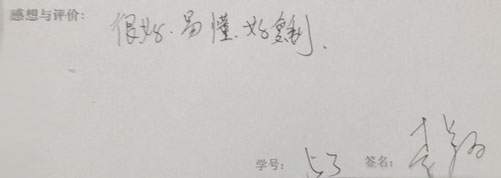 感想与评价:
很好.易懂.好复制.
学号: 签名: 李翔